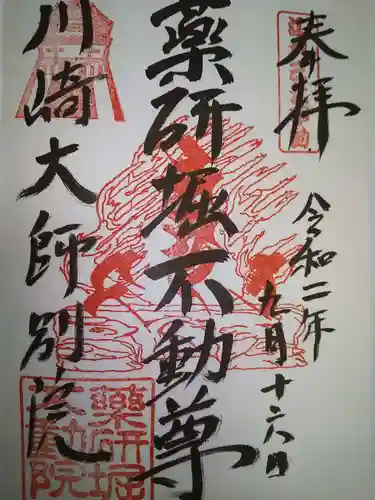 奉拝
令和二年
九月十六日
薬研堀不動尊
川崎大師別院
薬研堀